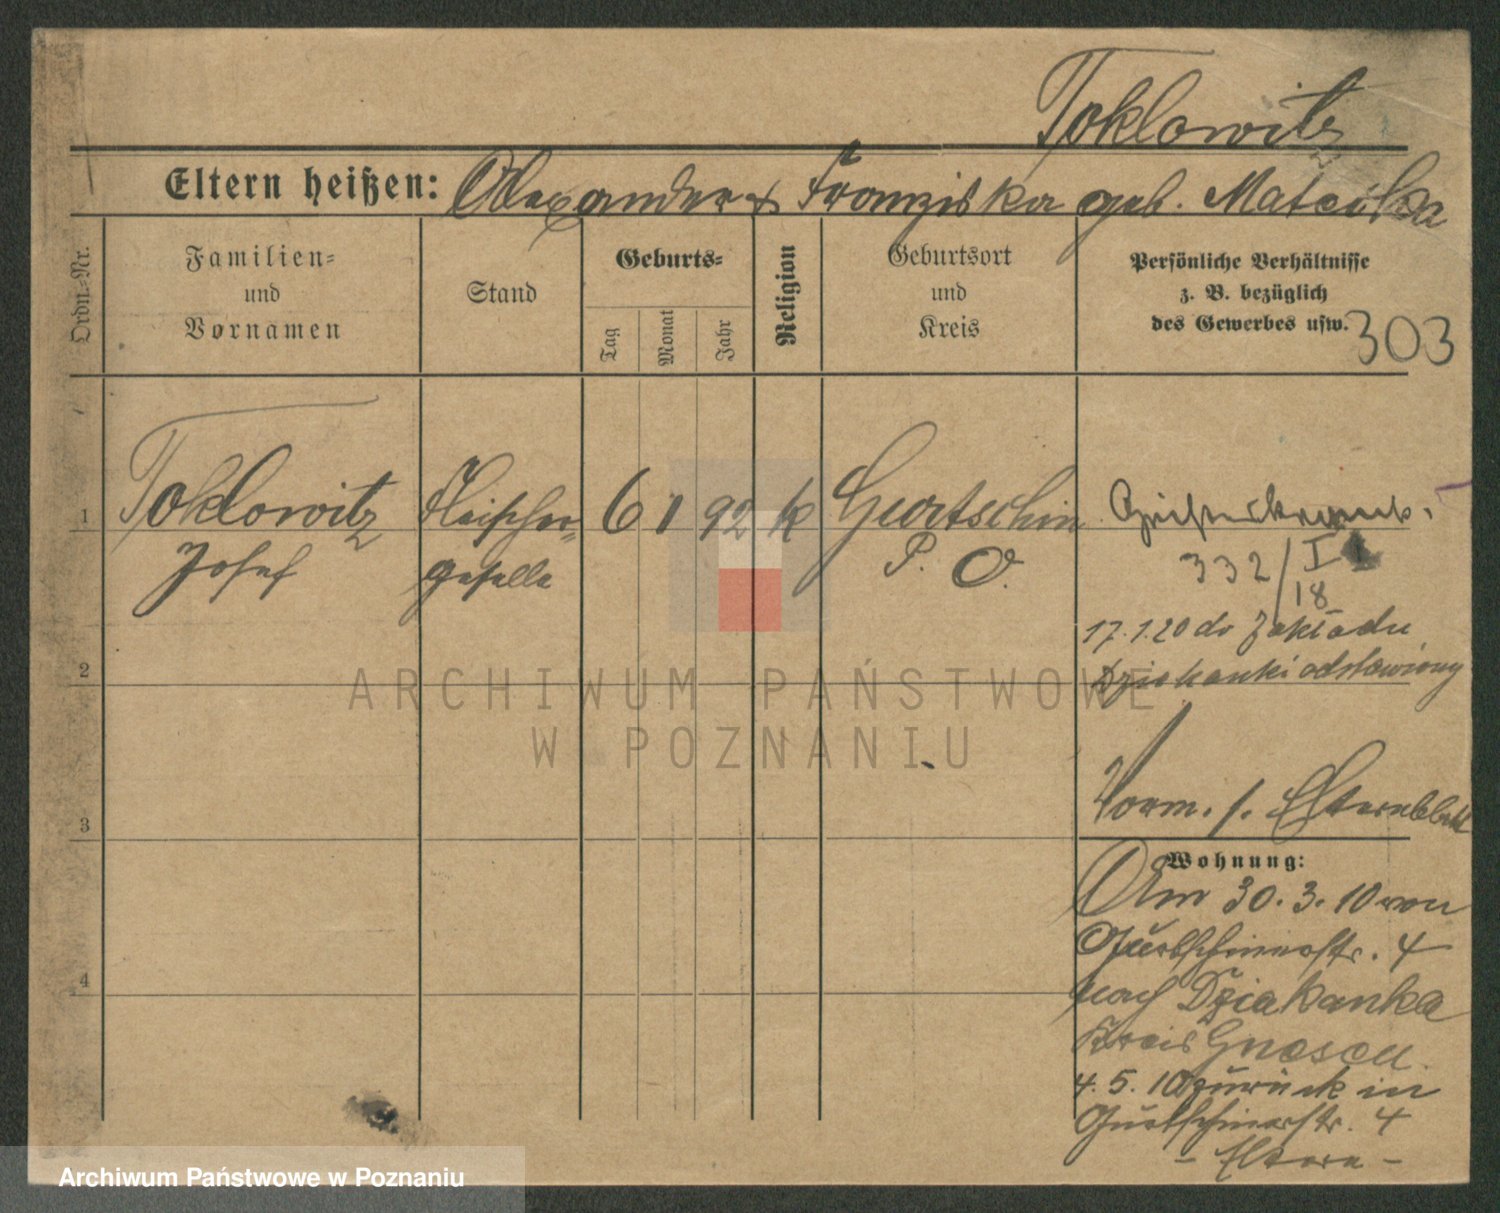 Toklowitz
Eltern heißen: Alexander & Franziska geb. Matcuska
Ordn.-Nr.
Familien-
und
Vornamen
Stand
Geburts-
Tag
Monat
Jahr
Religion
Geburtsort
und
Kreis
Persönliche Verhältnisse
z. B. bezüglich
des Gewerbes usw. 303
1
Toklowitz
Josef
Fleischer-
geselle
6 1 92 k
Gurtschin
P. O.
Geisteskrank.
332/I
18
17.1.20 do Zakładu
Dziekanki odstawiony
2
Vorm. s. Elternblatt
3
Wohnung:
Am 30.3.10 von
Gurtschinerstr. 4
nach Dziekanka
Kreis Gnesen
4.5.10 zurück in
Gurtschinerstr. 4
- Eltern -
4
ARCHIWUM PAŃSTWOWE
W POZNANIU
Archiwum Państwowe w Poznaniu